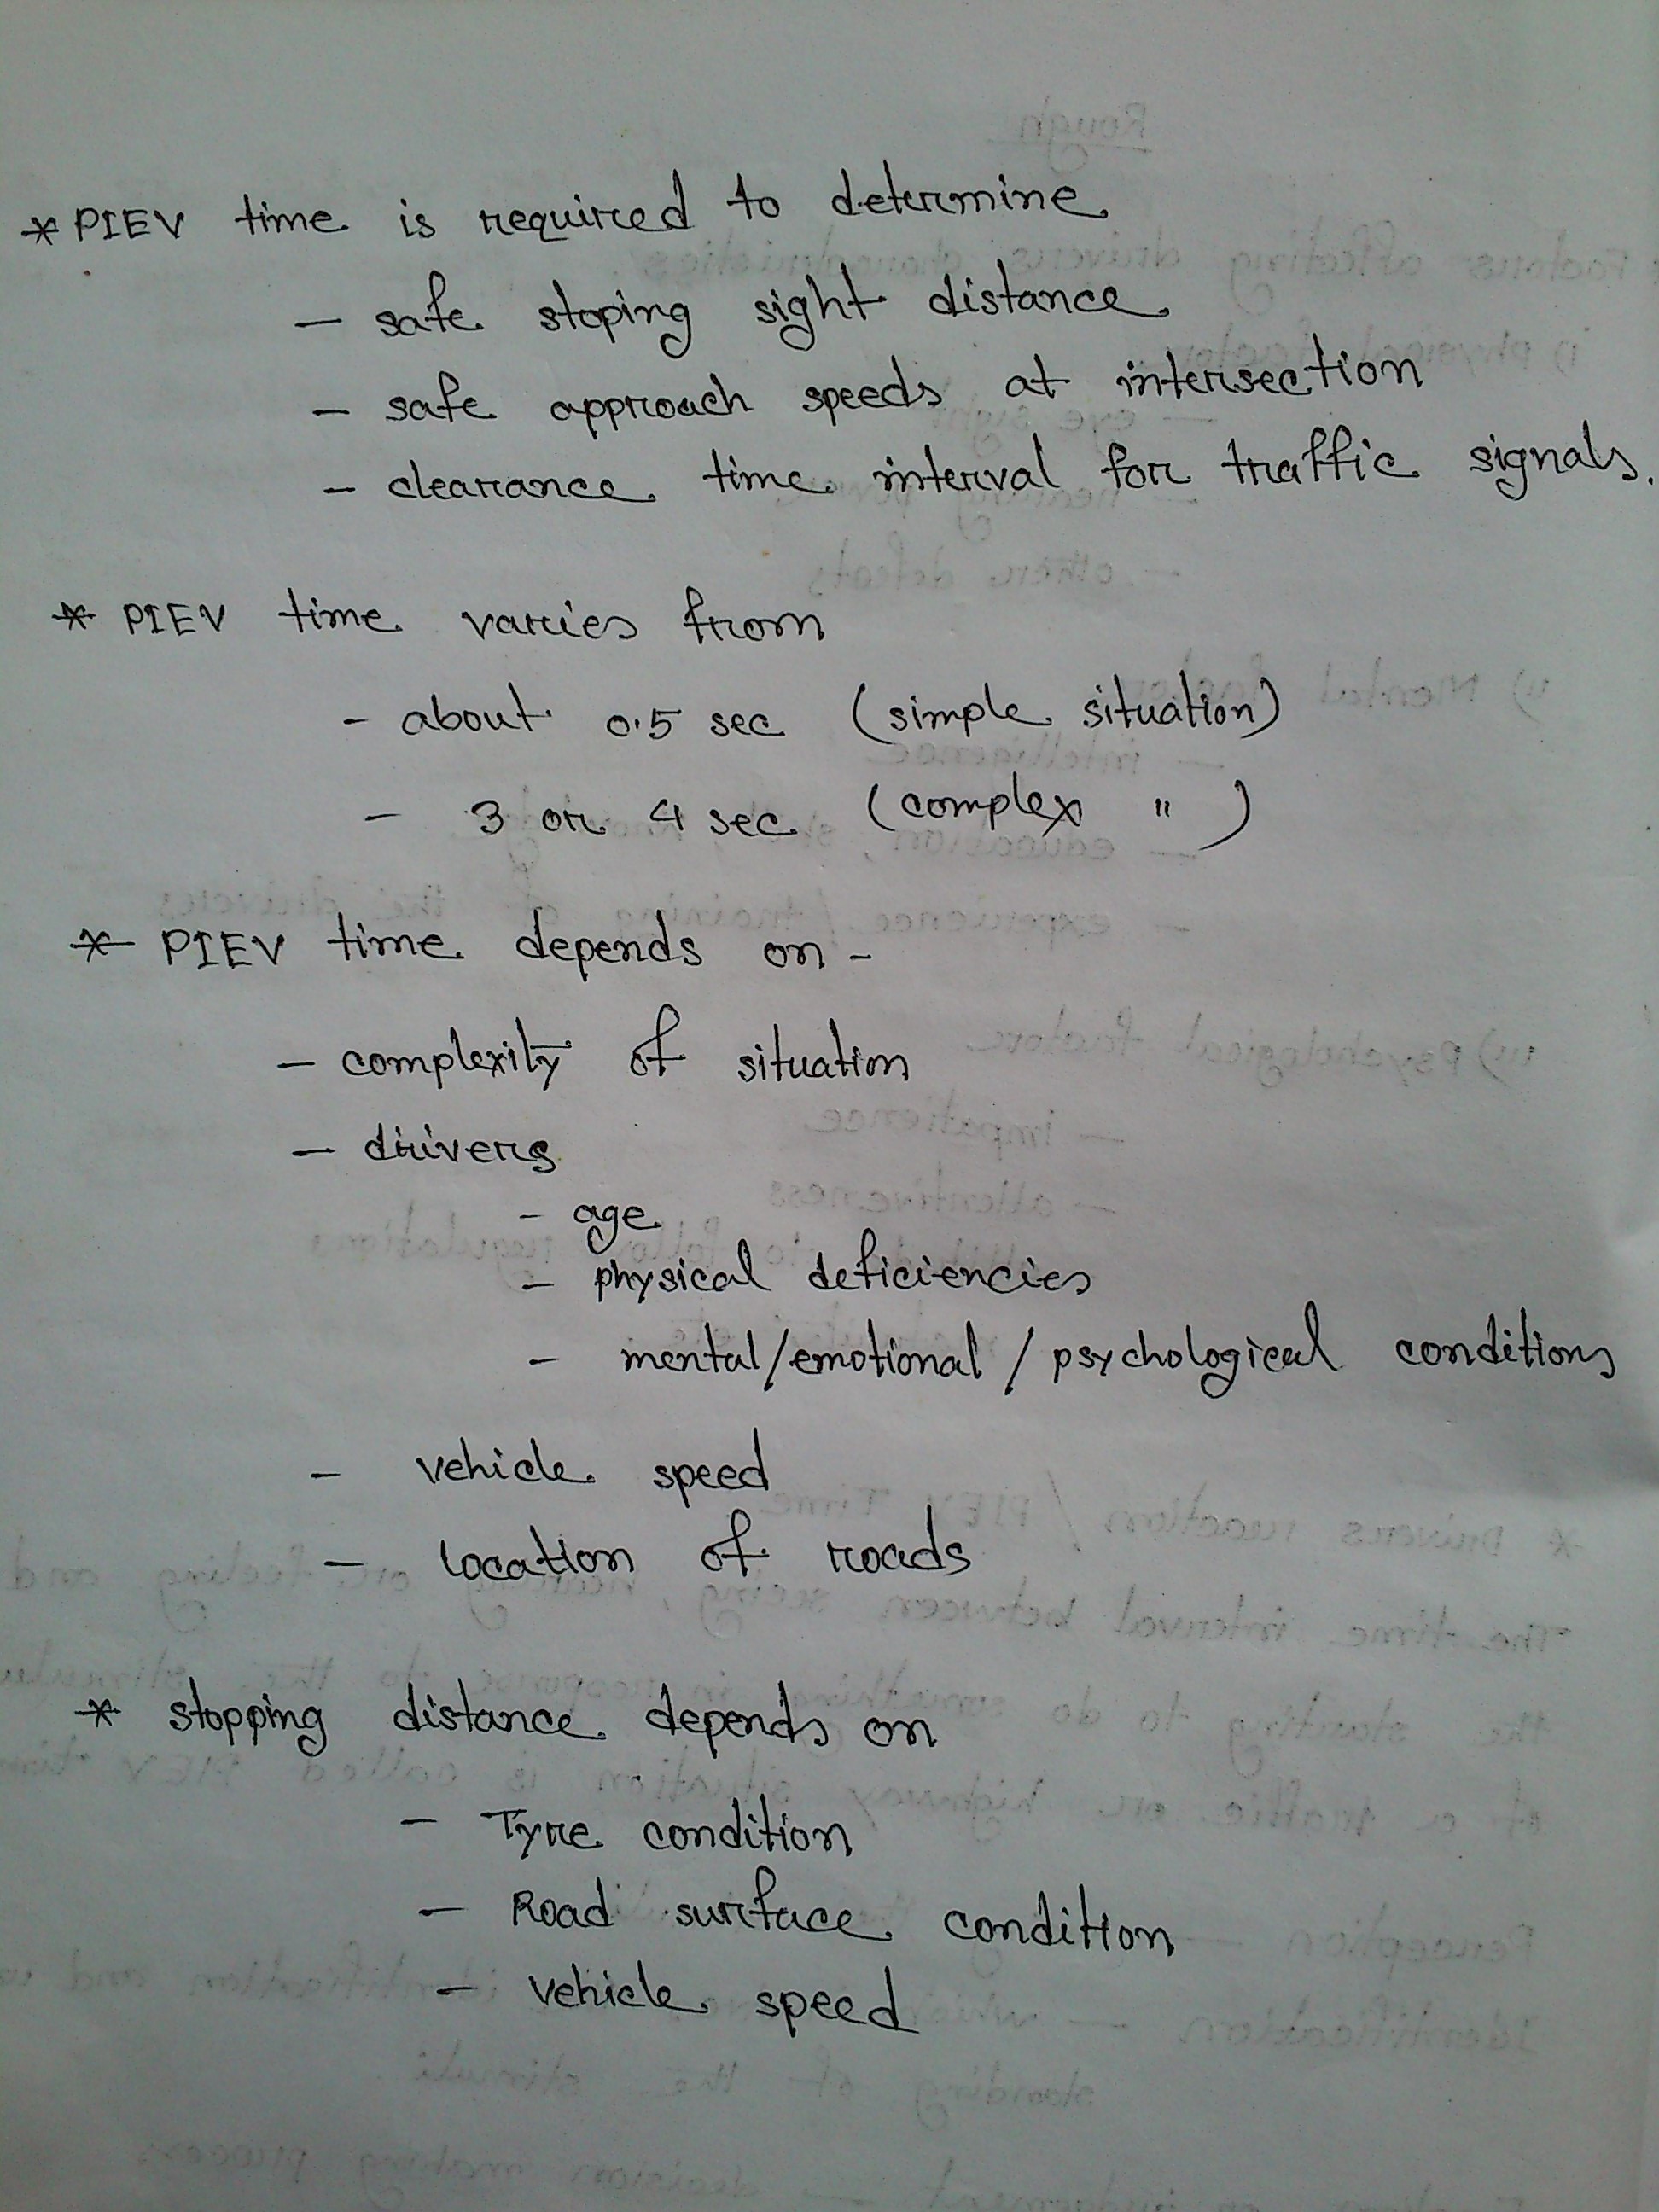 * PIEV time is required to determine
— safe stoping sight distance
— safe approach speeds at intersection
— clearance time interval for traffic signals.
* PIEV time varies from
- about 0.5 sec (simple situation)
- 3 or 4 sec (complex " )
* PIEV time depends on -
— complexity of situation
— drivers
- age
- physical deficiencies
- mental/emotional / psychological conditions
- vehicle speed
- Location of roads
* stopping distance depends on
- Tyre condition
- Road surface condition
- vehicle speed